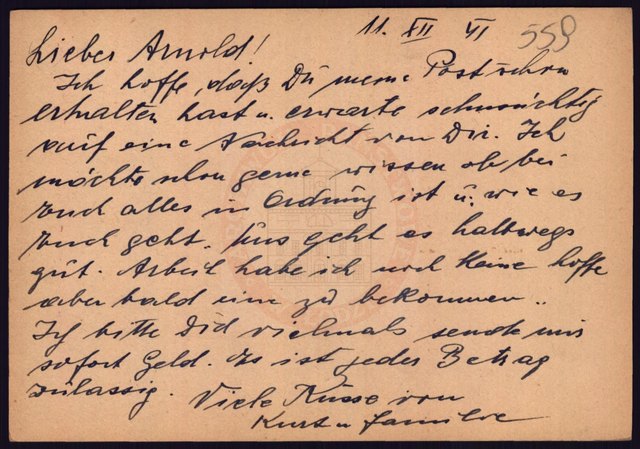 11. XII VI 559
Lieber Arnold!
Ich hoffe, daß Du meine Post schon
erhalten hast u. erwarte sehnsüchtig
auf eine Nachricht von Dir. Ich
möchte schon gerne wissen ob bei
Euch alles in Ordnung ist u. wie es
Euch geht. Uns geht es halbwegs
gut. Arbeit habe ich noch keine hoffe
aber bald eine zu bekommen..
Ich bitte Dich vielmals sende mir
sofort Geld. Es ist jeder Betrag
zulässig. Viele Küsse von
Kurt u familie